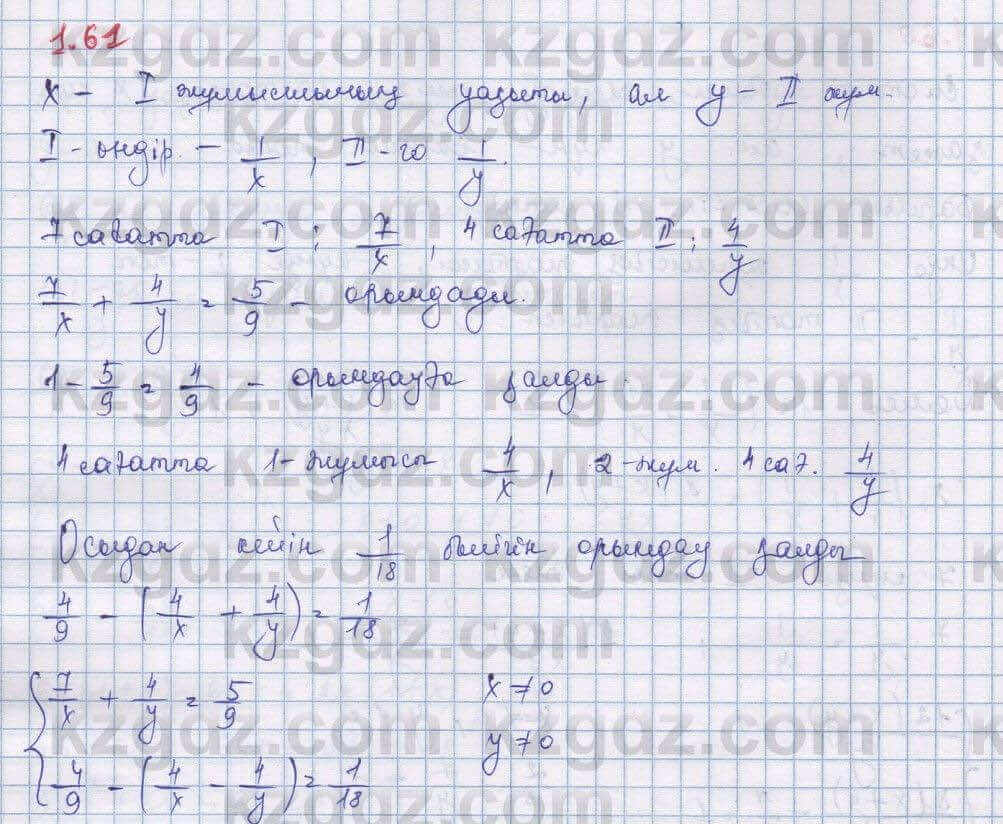 1.61
x - I жумысшының уақыты, ал y - II жум.
I - өндір. - 1/x, II-го 1/y.
7 сағатта I: 7/x, 4 сағатта II: 4/y
7/x + 4/y = 5/9 - орындады.
1 - 5/9 = 4/9 - орындауға қалды
4 сағатта 1-жумысы 4/x, 2-жум. 4 сағ. 4/y
Осыдан кейін 1/18 бөлігін орындау қалды
4/9 - (4/x + 4/y) = 1/18
{ 7/x + 4/y = 5/9 x ≠ 0
y ≠ 0
4/9 - (4/x - 4/y) = 1/18
kzgdz.com